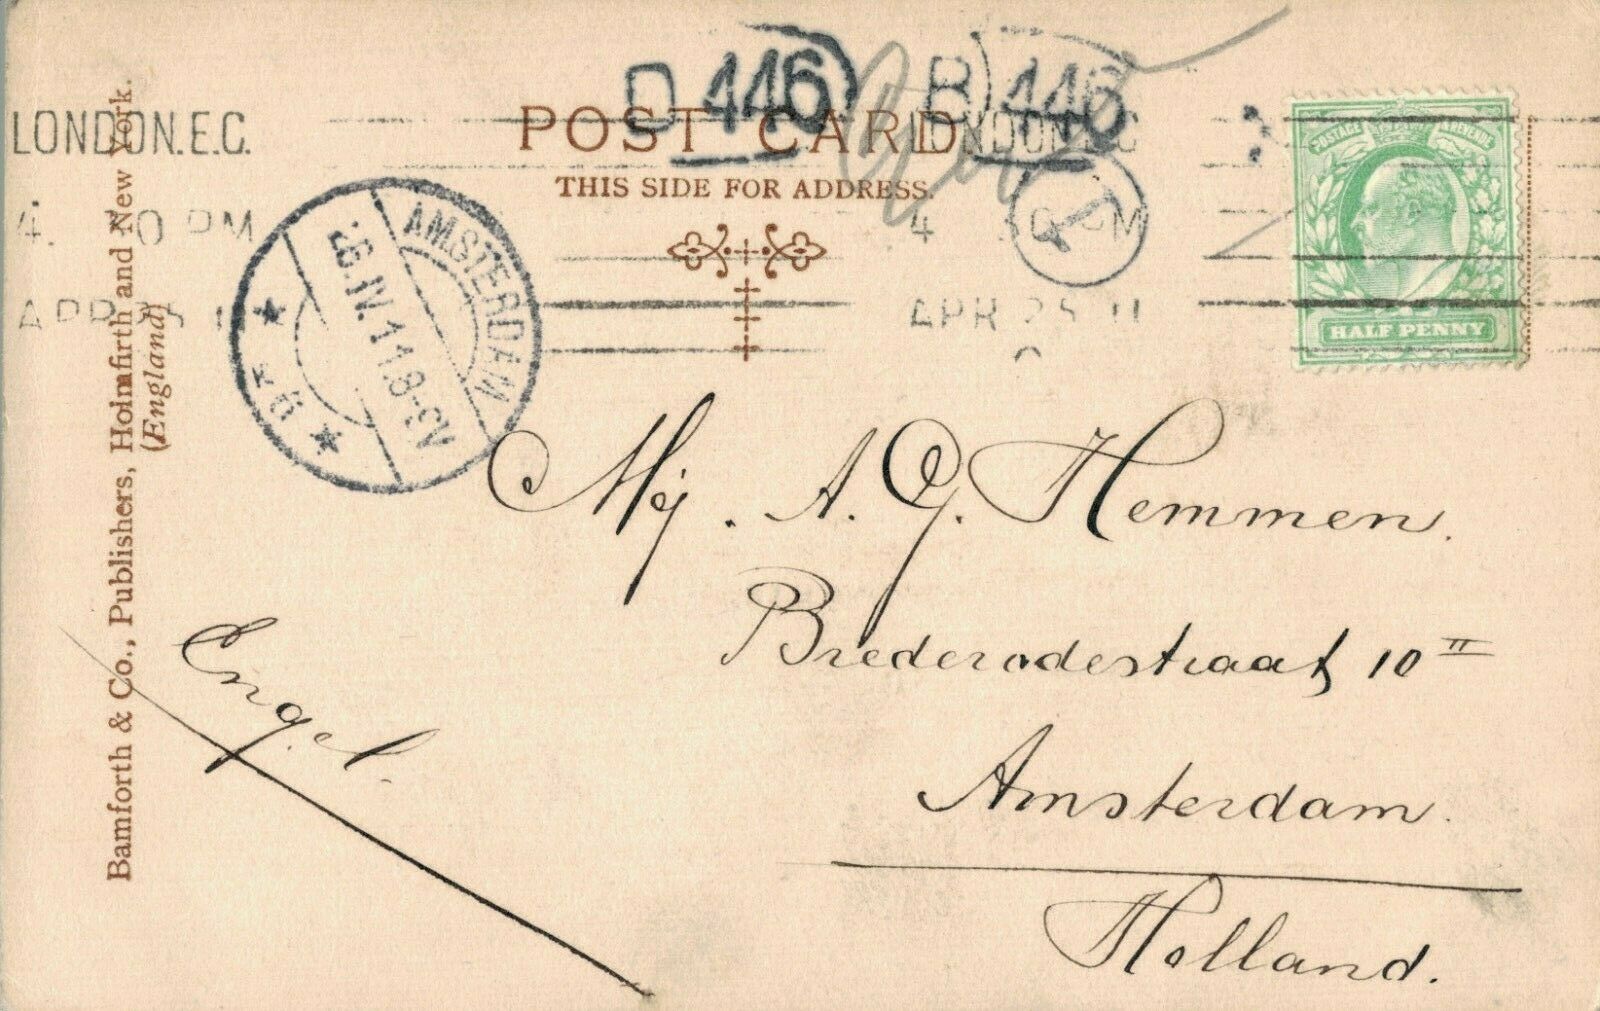 D 446
B 446
LONDON.E.C.
LONDON.E.C
POST CARD
THIS SIDE FOR ADDRESS.
T
4. 0 PM
4 30 PM
APR 25 11
APR 25 11
POSTAGE & REVENUE
HALF PENNY
AMSTERDAM
26.IV.11.8-9V
Bamforth & Co., Publishers, Holmfirth and New York.
(England)
Mej. A. G. Hemmen.
Brederodestraat 10 II
Amsterdam.
Holland.
Engel.